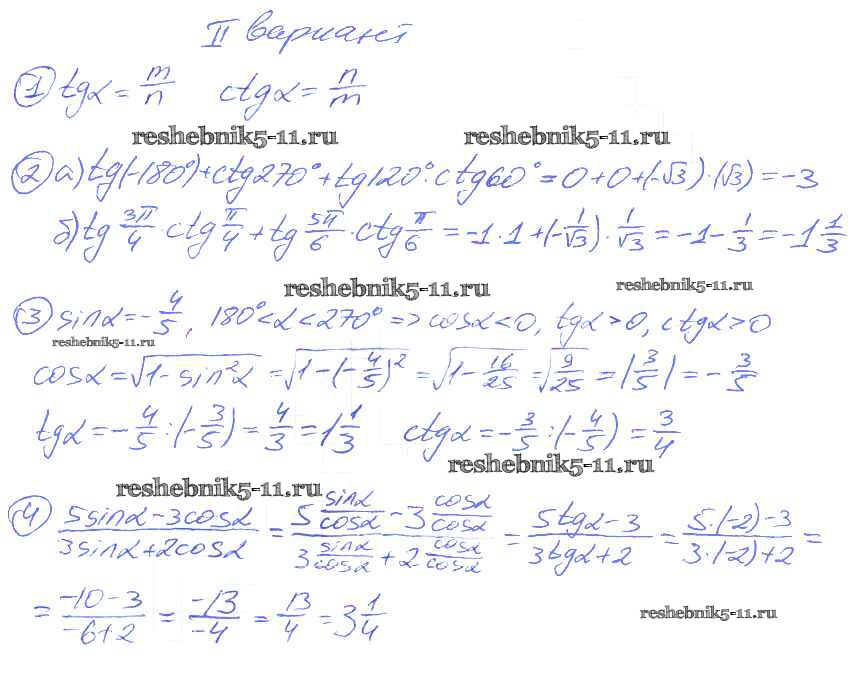 II вариант
① tgα = m/n ctgα = n/m
reshebnik5-11.ru reshebnik5-11.ru
② а) tg(-180°)+ctg270°+tg120°·ctg60° = 0+0+(-√3)·(√3) = -3
б) tg 3π/4 · ctg π/4 + tg 5π/6 · ctg π/6 = -1·1+(-1/√3)·1/√3 = -1-1/3 = -1 1/3
reshebnik5-11.ru reshebnik5-11.ru
③ sinα = -4/5, 180°<α<270° => cosα<0, tgα>0, ctgα>0
reshebnik5-11.ru
cosα = √(1-sin²α) = √(1-(-4/5)²) = √(1-16/25) = √(9/25) = |3/5| = -3/5
tgα = -4/5 : (-3/5) = 4/3 = 1 1/3 ctgα = -3/5 : (-4/5) = 3/4
reshebnik5-11.ru
reshebnik5-11.ru
④ (5sinα-3cosα)/(3sinα+2cosα) = (5 sinα/cosα - 3 cosα/cosα)/(3 sinα/cosα + 2 cosα/cosα) = (5tgα-3)/(3tgα+2) = (5·(-2)-3)/(3·(-2)+2) =
= (-10-3)/(-6+2) = -13/-4 = 13/4 = 3 1/4
reshebnik5-11.ru